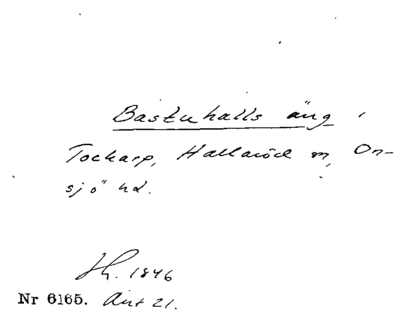 Bastuhalls äng,
Tockarp, Hallaröd sn, On-
sjö hd.
Lh. 1846
Nr 6165. Ant 21.